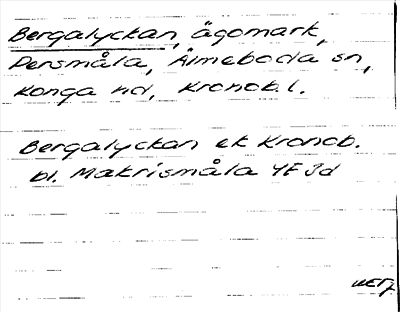 Bergalyckan, ägomark,
Persmåla, Älmeboda sn,
Konga hd, Kronob. l.
Bergalyckan ek Kronob.
bl. Makrismåla 4F 3d